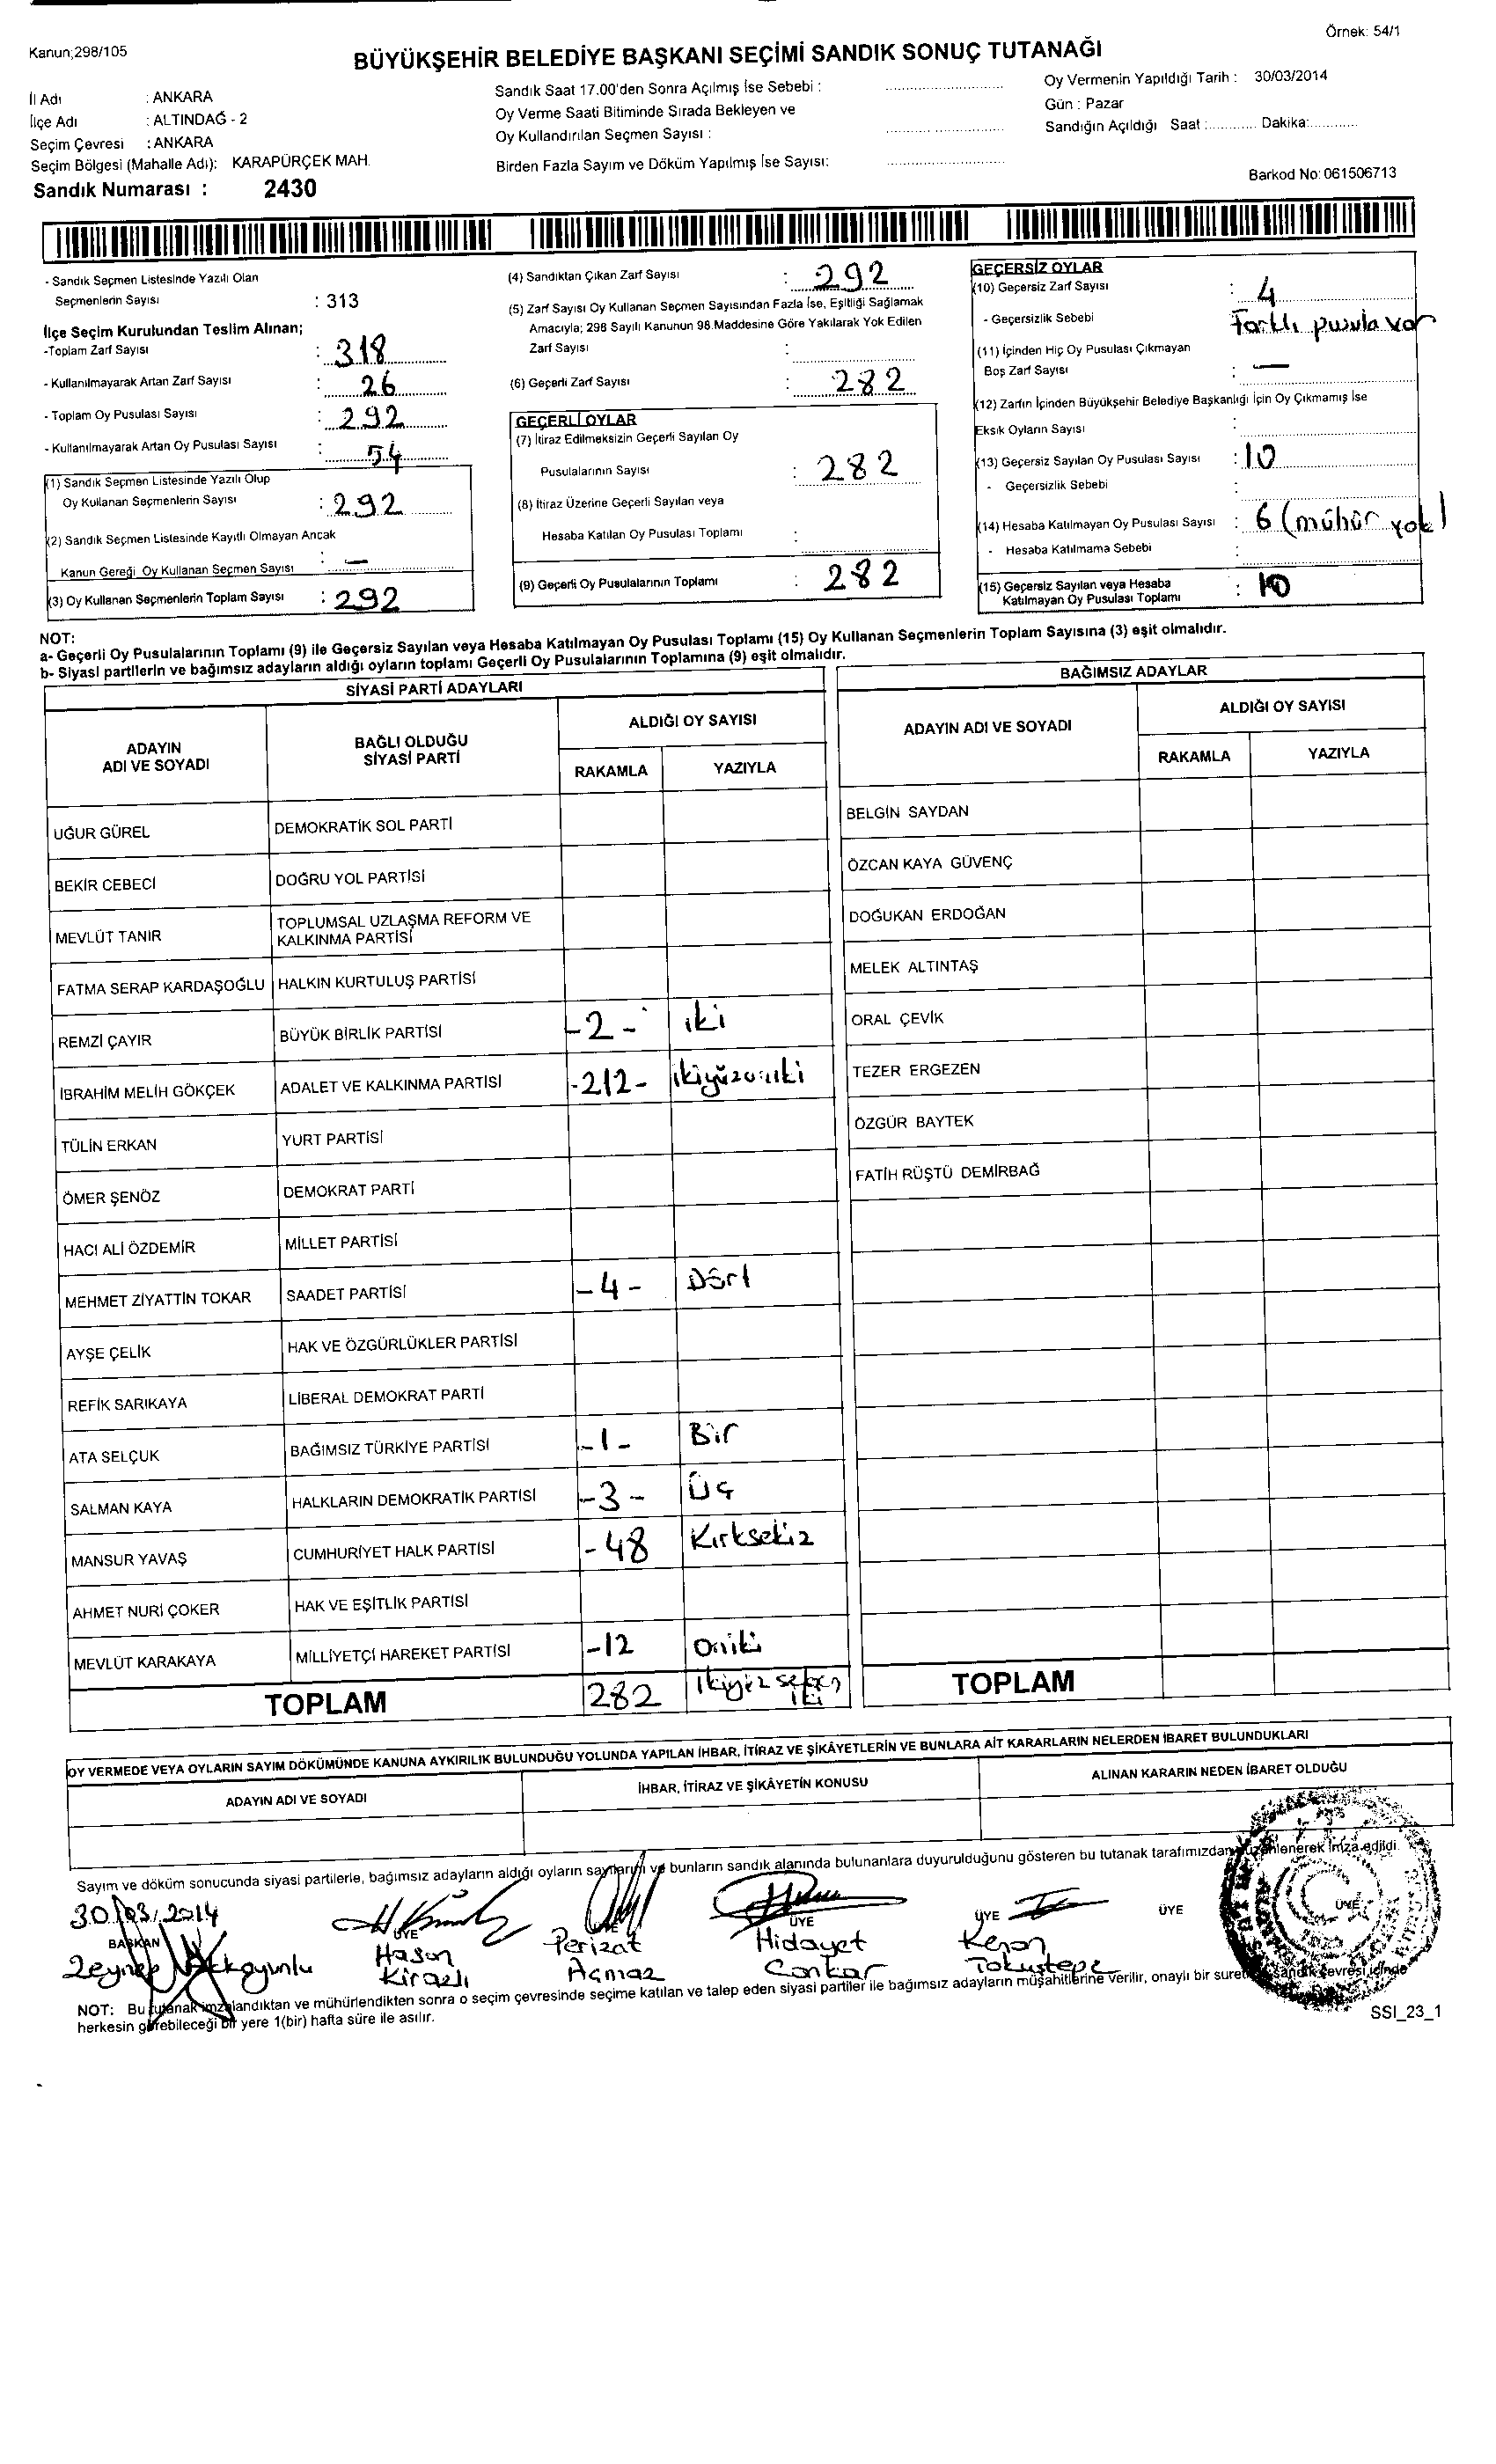 Örnek: 54/1
Kanun;298/105
BÜYÜKŞEHİR BELEDİYE BAŞKANI SEÇİMİ SANDIK SONUÇ TUTANAĞI
İl Adı : ANKARA
İlçe Adı : ALTINDAĞ - 2
Seçim Çevresi : ANKARA
Seçim Bölgesi (Mahalle Adı): KARAPÜRÇEK MAH.
Sandık Numarası : 2430
Sandık Saat 17.00'den Sonra Açılmış İse Sebebi :
Oy Verme Saati Bitiminde Sırada Bekleyen ve
Oy Kullandırılan Seçmen Sayısı :
Birden Fazla Sayım ve Döküm Yapılmış İse Sayısı:
Oy Vermenin Yapıldığı Tarih : 30/03/2014
Gün : Pazar
Sandığın Açıldığı Saat :............ Dakika:............
Barkod No: 061506713
- Sandık Seçmen Listesinde Yazılı Olan
Seçmenlerin Sayısı : 313
İlçe Seçim Kurulundan Teslim Alınan;
-Toplam Zarf Sayısı : 318
- Kullanılmayarak Artan Zarf Sayısı : 26
- Toplam Oy Pusulası Sayısı : 292
- Kullanılmayarak Artan Oy Pusulası Sayısı : 54
(1) Sandık Seçmen Listesinde Yazılı Olup
Oy Kullanan Seçmenlerin Sayısı : 292
(2) Sandık Seçmen Listesinde Kayıtlı Olmayan Ancak
Kanun Gereği Oy Kullanan Seçmen Sayısı : —
(3) Oy Kullanan Seçmenlerin Toplam Sayısı : 292
(4) Sandıktan Çıkan Zarf Sayısı : 292
(5) Zarf Sayısı Oy Kullanan Seçmen Sayısından Fazla İse, Eşitliği Sağlamak
Amacıyla; 298 Sayılı Kanunun 98.Maddesine Göre Yakılarak Yok Edilen
Zarf Sayısı :
(6) Geçerli Zarf Sayısı : 282
GEÇERLİ OYLAR
(7) İtiraz Edilmeksizin Geçerli Sayılan Oy
Pusulalarının Sayısı : 282
(8) İtiraz Üzerine Geçerli Sayılan veya
Hesaba Katılan Oy Pusulası Toplamı :
(9) Geçerli Oy Pusulalarının Toplamı : 282
GEÇERSİZ OYLAR
(10) Geçersiz Zarf Sayısı : 4
- Geçersizlik Sebebi Farklı pusula var
(11) İçinden Hiç Oy Pusulası Çıkmayan
Boş Zarf Sayısı : —
(12) Zarfın İçinden Büyükşehir Belediye Başkanlığı İçin Oy Çıkmamış İse
Eksik Oyların Sayısı :
(13) Geçersiz Sayılan Oy Pusulası Sayısı : 10
- Geçersizlik Sebebi :
(14) Hesaba Katılmayan Oy Pusulası Sayısı : 6 (mühür yok)
- Hesaba Katılmama Sebebi :
(15) Geçersiz Sayılan veya Hesaba
Katılmayan Oy Pusulası Toplamı : 10
NOT:
a- Geçerli Oy Pusulalarının Toplamı (9) ile Geçersiz Sayılan veya Hesaba Katılmayan Oy Pusulası Toplamı (15) Oy Kullanan Seçmenlerin Toplam Sayısına (3) eşit olmalıdır.
b- Siyasi partilerin ve bağımsız adayların aldığı oyların toplamı Geçerli Oy Pusulalarının Toplamına (9) eşit olmalıdır.
SİYASİ PARTİ ADAYLARI
ADAYIN ADI VE SOYADI BAĞLI OLDUĞU SİYASİ PARTİ ALDIĞI OY SAYISI
RAKAMLA YAZIYLA
UĞUR GÜREL DEMOKRATİK SOL PARTİ
BEKİR CEBECİ DOĞRU YOL PARTİSİ
MEVLÜT TANIR TOPLUMSAL UZLAŞMA REFORM VE KALKINMA PARTİSİ
FATMA SERAP KARDAŞOĞLU HALKIN KURTULUŞ PARTİSİ
REMZİ ÇAYIR BÜYÜK BİRLİK PARTİSİ -2- iki
İBRAHİM MELİH GÖKÇEK ADALET VE KALKINMA PARTİSİ -212- ikiyüzoniki
TÜLİN ERKAN YURT PARTİSİ
ÖMER ŞENÖZ DEMOKRAT PARTİ
HACI ALİ ÖZDEMİR MİLLET PARTİSİ
MEHMET ZİYATTİN TOKAR SAADET PARTİSİ -4- Dört
AYŞE ÇELİK HAK VE ÖZGÜRLÜKLER PARTİSİ
REFİK SARIKAYA LİBERAL DEMOKRAT PARTİ
ATA SELÇUK BAĞIMSIZ TÜRKİYE PARTİSİ -1- Bir
SALMAN KAYA HALKLARIN DEMOKRATİK PARTİSİ -3- Üç
MANSUR YAVAŞ CUMHURİYET HALK PARTİSİ -48 Kırksekiz
AHMET NURİ ÇOKER HAK VE EŞİTLİK PARTİSİ
MEVLÜT KARAKAYA MİLLİYETÇİ HAREKET PARTİSİ -12 Oniki
TOPLAM 282 ikiyüz seksen iki
BAĞIMSIZ ADAYLAR
ADAYIN ADI VE SOYADI ALDIĞI OY SAYISI
RAKAMLA YAZIYLA
BELGİN SAYDAN
ÖZCAN KAYA GÜVENÇ
DOĞUKAN ERDOĞAN
MELEK ALTINTAŞ
ORAL ÇEVİK
TEZER ERGEZEN
ÖZGÜR BAYTEK
FATİH RÜŞTÜ DEMİRBAĞ
TOPLAM
OY VERMEDE VEYA OYLARIN SAYIM DÖKÜMÜNDE KANUNA AYKIRILIK BULUNDUĞU YOLUNDA YAPILAN İHBAR, İTİRAZ VE ŞİKÂYETLERİN VE BUNLARA AİT KARARLARIN NELERDEN İBARET BULUNDUKLARI
ADAYIN ADI VE SOYADI İHBAR, İTİRAZ VE ŞİKÂYETİN KONUSU ALINAN KARARIN NEDEN İBARET OLDUĞU
Sayım ve döküm sonucunda siyasi partilerle, bağımsız adayların aldığı oyların sayılarını ve bunların sandık alanında bulunanlara duyurulduğunu gösteren bu tutanak tarafımızdan düzenlenerek imza edildi.
30/03/2014
BAŞKAN ÜYE ÜYE ÜYE ÜYE ÜYE
Zeynep Akkoyunlu
Hasan Kirazlı
Perizat Açmaz
Hidayet Conkar
Kenan Tokuştepe
NOT: Bu tutanak imzalandıktan ve mühürlendikten sonra o seçim çevresinde seçime katılan ve talep eden siyasi partiler ile bağımsız adayların müşahitlerine verilir, onaylı bir sureti sandık çevresi içinde
herkesin görebileceği bir yere 1(bir) hafta süre ile asılır.
SSI_23_1